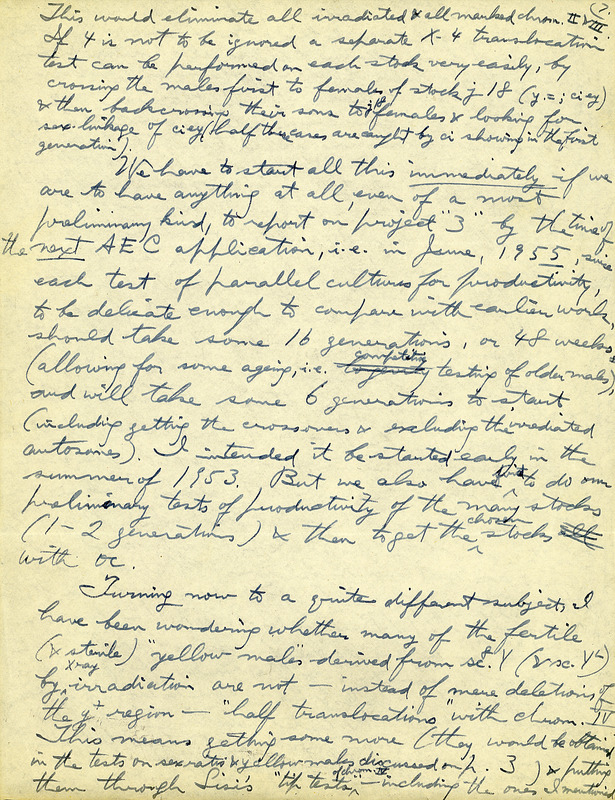 (7)
This would eliminate all irradiated & all marked chrom. II & III.
If 4 is not to be ignored a separate X-4 translocation
test can be performed on each stock very easily, by
crossing the males first to females of stock j-18 (y=; ci ey)
& then backcrossing their sons to j-18 females & looking for
sex-linkage of ci ey (half the cases are caught by ci showing in the first
generation).
We have to start all this immediately if we
are to have anything at all, even of a most
preliminary kind, to report on project "3" by the time of
the next AEC application, i.e. in June, 1955, since
each test of parallel cultures for productivity,
to be delicate enough to compare with earlier work,
should take some 16 generations, or 48 weeks
(allowing for some ageing, i.e. competitive testing of older males),
and will take some 6 generations to start
(including getting the crossovers & excluding the irradiated
autosomes). I intended it be started early in the
summer of 1953. But we also have first to do our
preliminary tests of productivity of the many stocks
(1-2 generations) & then to get the chosen stocks
with bc.
Turning now to a quite different subject, I
have been wondering whether many of the fertile
(& sterile) "yellow males" derived from sc8.Y (& sc.YL)
by xray irradiation are not — instead of mere deletions of
the y+ region — "half translocations" with chrom. IV
This means getting some more (they would be obtained
in the tests on sex ratio & yellow males discussed on p. 3) & putting
them through Sisi's "tip tests" of chrom. IV — including the ones I mentioned